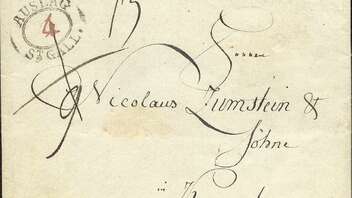 AUSLAG
4
ST GALL.
Herren
Nicolaus Zumstein &
Söhne
in